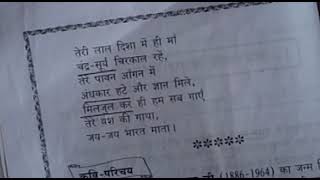 तेरी लाल दिशा में ही माँ
चंद्र-सूर्य चिरकाल रहें,
तेरे पावन आँगन में
अंधकार हटे और ज्ञान मिले,
मिलजुल कर ही हम सब गाएँ
तेरे यश की गाथा,
जय-जय भारत माता।
*****
कवि-परिचय
(1886-1964) का जन्म